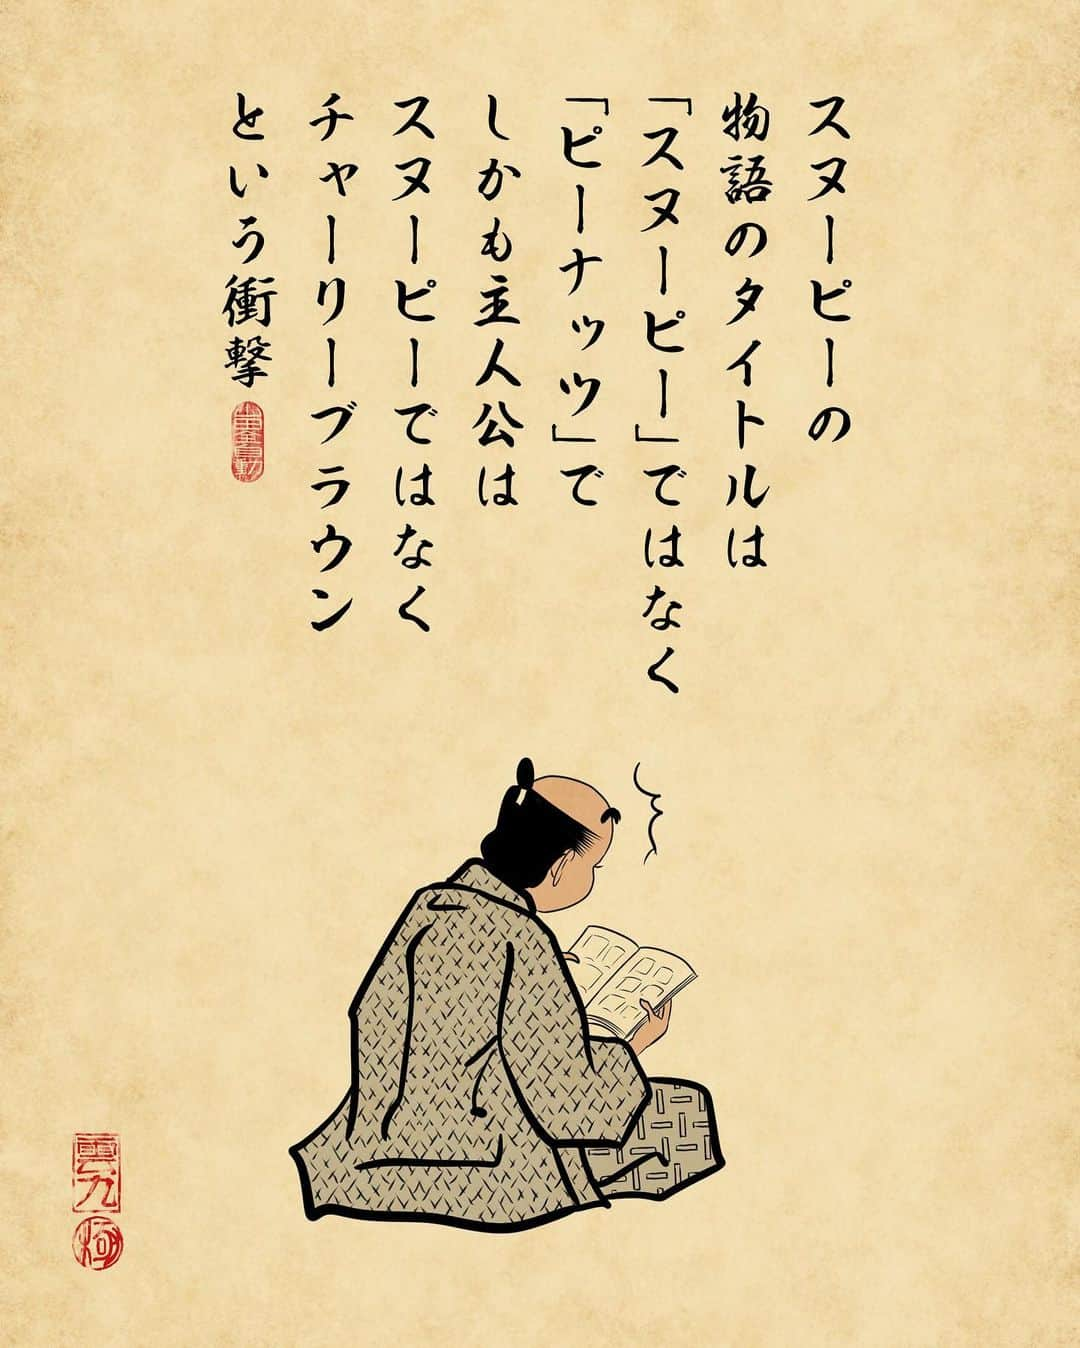 スヌーピーの
物語のタイトルは
「スヌーピー」ではなく
「ピーナッツ」で
しかも主人公は
スヌーピーではなく
チャーリーブラウン
という衝撃